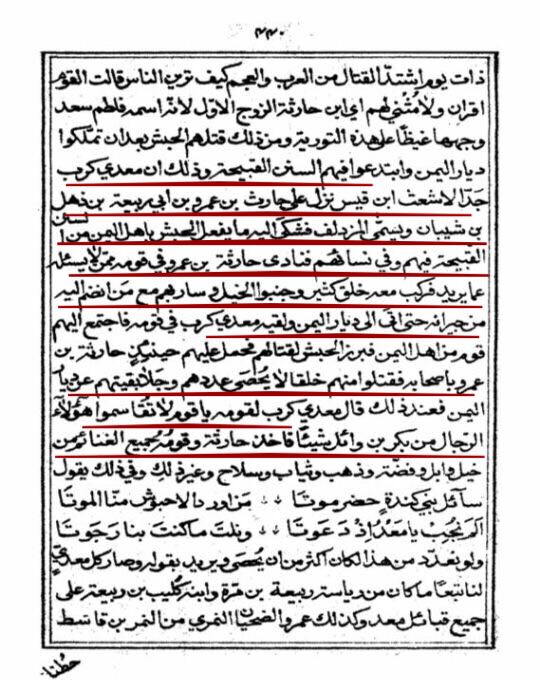 ٤٤٠
ذات يوم اشتد القتال من العرب والعجم كيف ترين الناس قالت القوم
اقران ولا مثنى لهم اي ابن حارثة الزوج الاول لانه اسمه فلطم سعد
وجهها غيظا على هذه التورية ومن ذلك قتلهم الحبش بعد ان تملكوا
ديار اليمن وابتدعوا فيهم السنن القبيحة وذلك ان معدي كرب
جد الاشعث ابن قيس نزل على حارث بن عمرو بن ابي ربيعة بن ذهل
بن شيبان ويسمى المزدلف فشكى اليه ما يفعل الحبش باهل اليمن من السنن
القبيحة فيهم وفي نسائهم فنادى حارثة بن عمرو في قومه ممن لا يسئله
عما يريد فركب معه خلق كثير وجنبوا الخيل وسار بهم مع من انضم اليه
من جيرانه حتى اتى الى ديار اليمن ولقيه معدي كرب في قومه فاجتمع اليهم
قوم من اهل اليمن فبرز الحبش لقتالهم فحمل عليهم حينئذ حارثة بن
عمرو باصحابه فقتلوا منهم خلقا لا يحصى عددهم وجلا بقيتهم عن ديار
اليمن فعند ذلك قال معدي كرب لقومه يا قوم لا تقاسموا هؤلاء
الرجال من بكر بن وائل شيئا فاخذ حارثة وقومه جميع الغنائم من
خيل وابل وفضة وذهب وثياب وسلاح وغير ذلك وفي ذلك يقول
سائل بني كندة حضرموتا من اورد الاحبوش منا الموتا
الم نجب يا معد اذ دعوتا ونلت ما كنت بنا رجوتا
ولو نعدد من هذا لكان اكثر من ان يحصى ويريد بقوله وصار كل معدي
لنا تبعا ما كان من رياسة ربيعة بن مرة وابنه كليب بن ربيعة على
جميع قبائل معد وكذلك عمرو الضحيان النمري من النمر بن قاسط